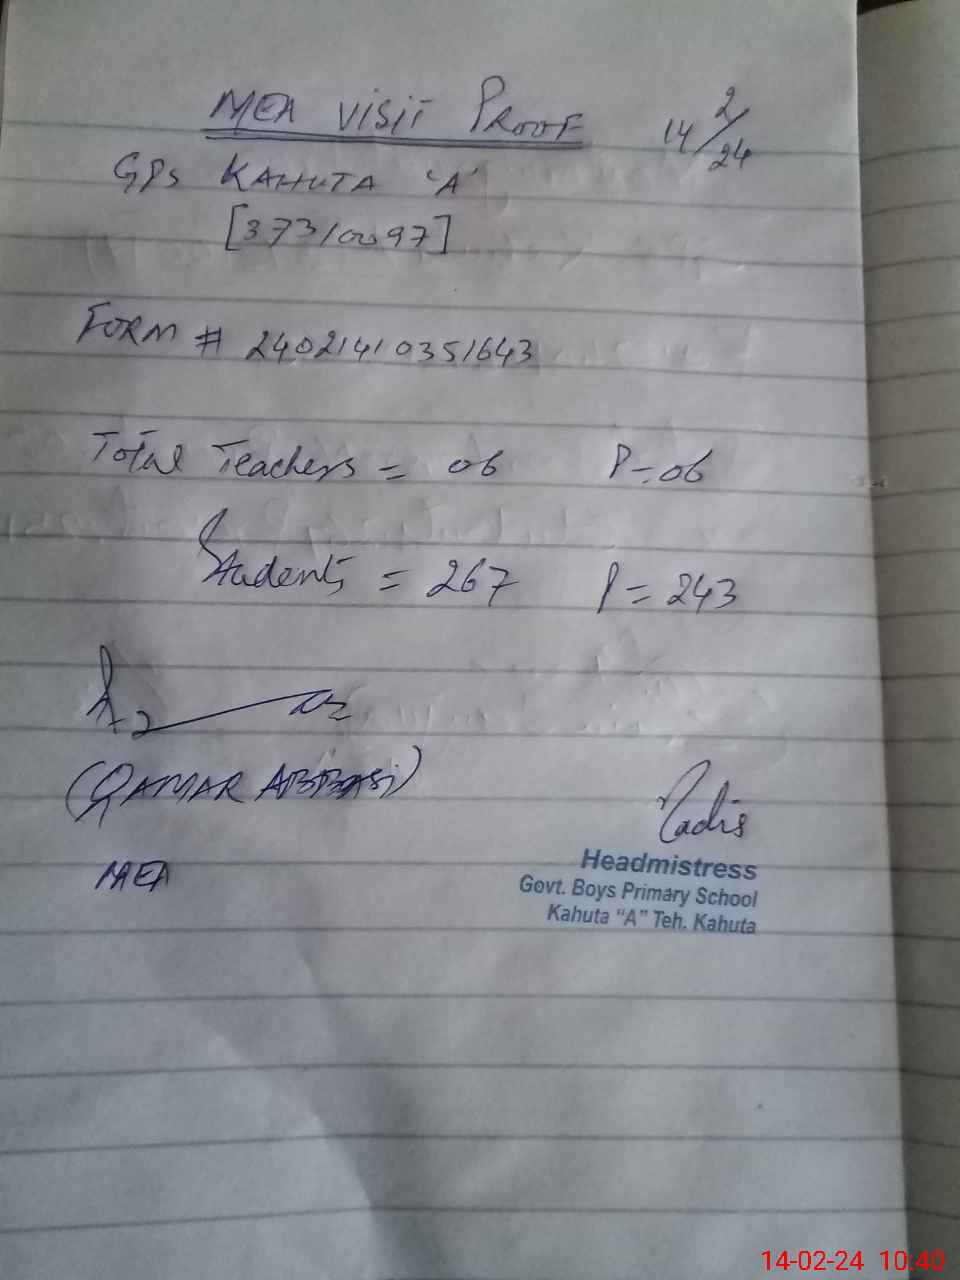 MEA VISIT PROOF 14/2/24
GPS KAHUTA 'A'
[37310097]
FORM # 24021410351643
Total Teachers = 06 P=06
Students = 267 P=243
(QAMAR ABBASI)
MEA
Headmistress
Govt. Boys Primary School
Kahuta "A" Teh. Kahuta
14-02-24 10:40